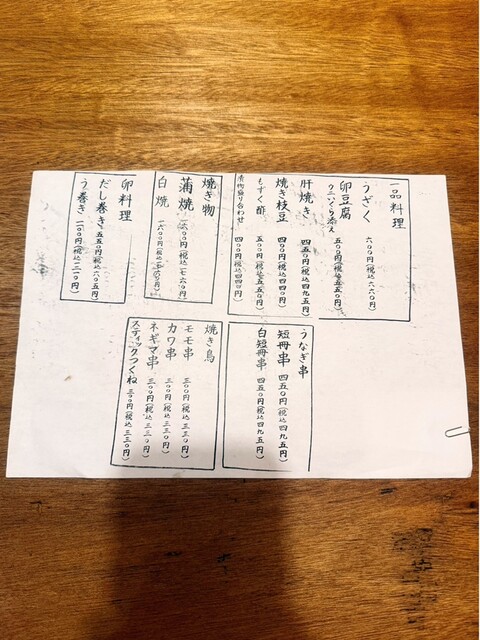 一品料理
うざく 六〇〇円(税込六六〇円)
卵豆腐
ウニいくら添え 五〇〇円(税込五五〇円)
肝焼き 四五〇円(税込四九五円)
焼き枝豆 四〇〇円(税込四四〇円)
もずく酢 五〇〇円(税込五五〇円)
漬物盛り合わせ 四〇〇円(税込四四〇円)
焼き物
蒲焼 一六〇〇円(税込一七六〇円)
白焼 一六〇〇円(税込一七六〇円)
卵料理
だし巻き 五五〇円(税込六〇五円)
う巻き 一一〇〇円(税込一二一〇円)
うなぎ串
短冊串 四五〇円(税込四九五円)
白短冊串 四五〇円(税込四九五円)
焼き鳥
モモ串 三〇〇円(税込三三〇円)
カワ串 三〇〇円(税込三三〇円)
ネギマ串 三〇〇円(税込三三〇円)
スティックつくね 三〇〇円(税込三三〇円)